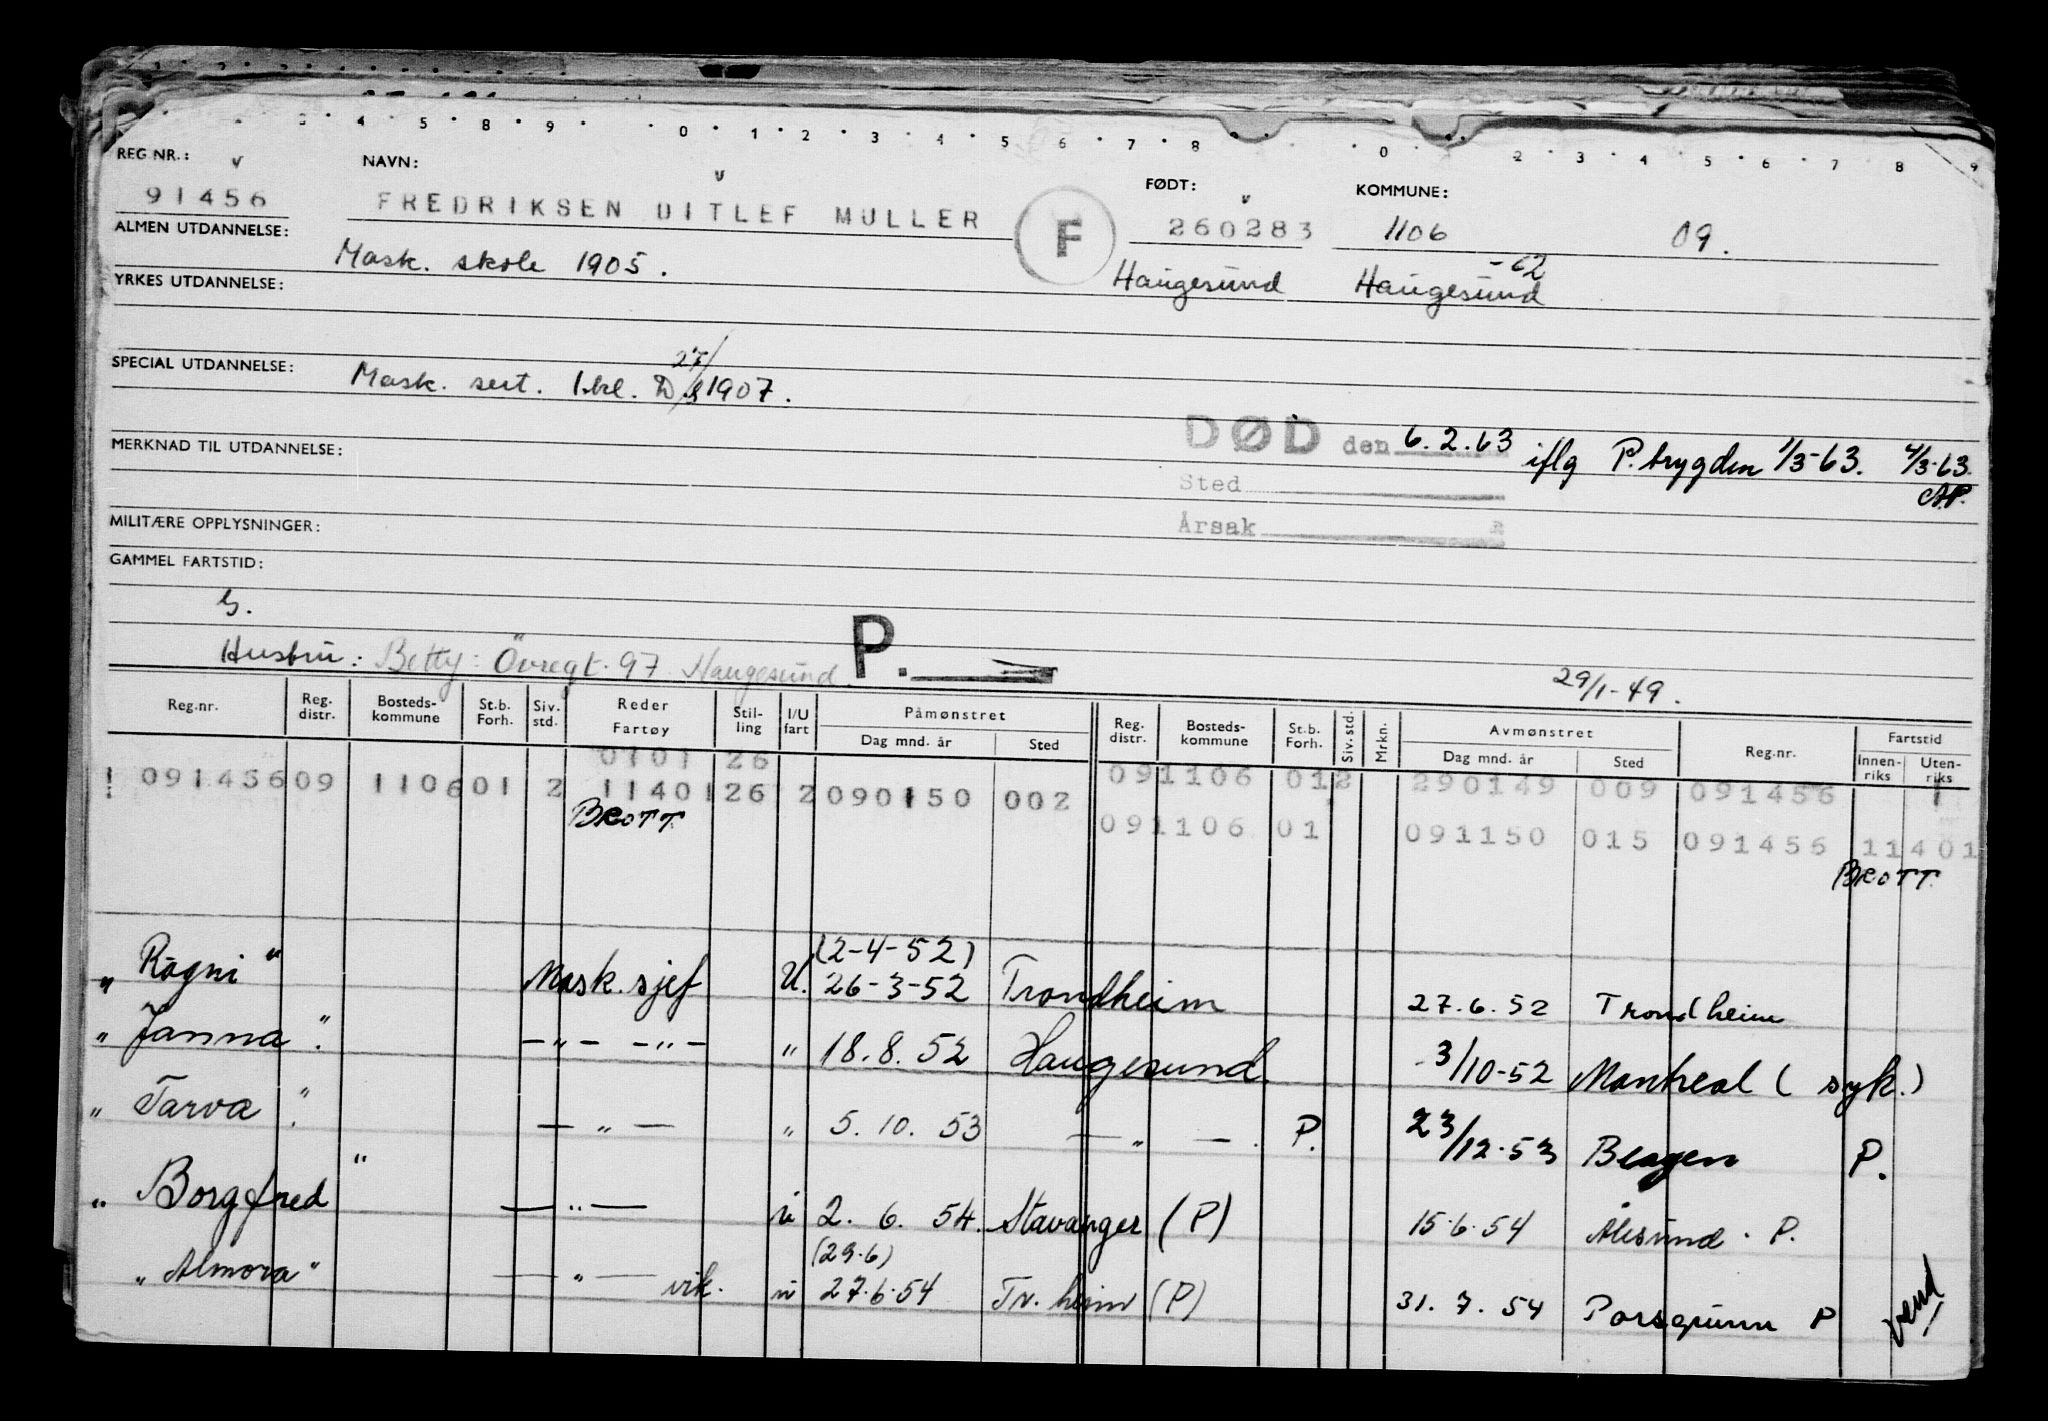 3 4 5 8 9 0 1 2 3 4 5 6 7 8 0 2 3 4 5 6 7 8 9
REG NR.: v NAVN: v FØDT: v KOMMUNE:
91456 FREDRIKSEN DITLEF MULLER F 260283 1106 09.
ALMEN UTDANNELSE: Mask. skole 1905. Haugesund Haugesund -62
YRKES UTDANNELSE:
SPECIAL UTDANNELSE: Mask. sert. 1.kl. D 27/8 1907.
DØD den 6.2.63 iflg P.trygden 1/3-63. 4/3-63. AP.
MERKNAD TIL UTDANNELSE:
Sted
MILITÆRE OPPLYSNINGER: Årsak
GAMMEL FARTSTID:
G.
Hustru: Betty: Övregt. 97 Haugesund P. 29/1-49.
Reg.nr. Reg. distr. Bosteds-kommune St.b. Forh. Siv. std. Reder Fartøy Stil-ling I/U fart Påmønstret Dag mnd. år Sted Reg. distr. Bosteds-kommune St.b. Forh. Siv. std. Mrkn. Avmønstret Dag mnd. år Sted Reg.nr. Fartstid Innen-riks Uten-riks
0101 26 091106 012 290149 009 091456 1
091456 09 1106 01 2 11401 26 2 090150 002
BROTT 091106 01 091150 015 091456 11401
BROTT.
(2-4-52)
„ Rogni " Mask.sjef U. 26-3-52 Trondheim 27.6.52 Trondheim
„ Janna ". -"- -"- " 18.8.52 Haugesund. 3/10-52 Montreal (syk.)
„ Tarva " — " — " 5.10.53 — " — . P. 23/12.53 Bergen P.
„ Borgfred " — " — " 2.6.54. Stavanger (P) 15.6.54 Ålesund. P.
(29.6)
„ Almora " — " — vik. " 27.6.54 Tr.heim (P) 31.7.54 Porsgrunn P
vend!